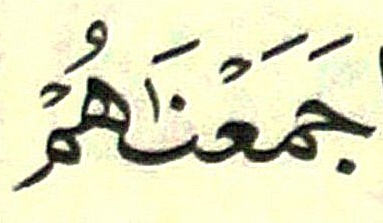 جَمَعْنَاهُمْ